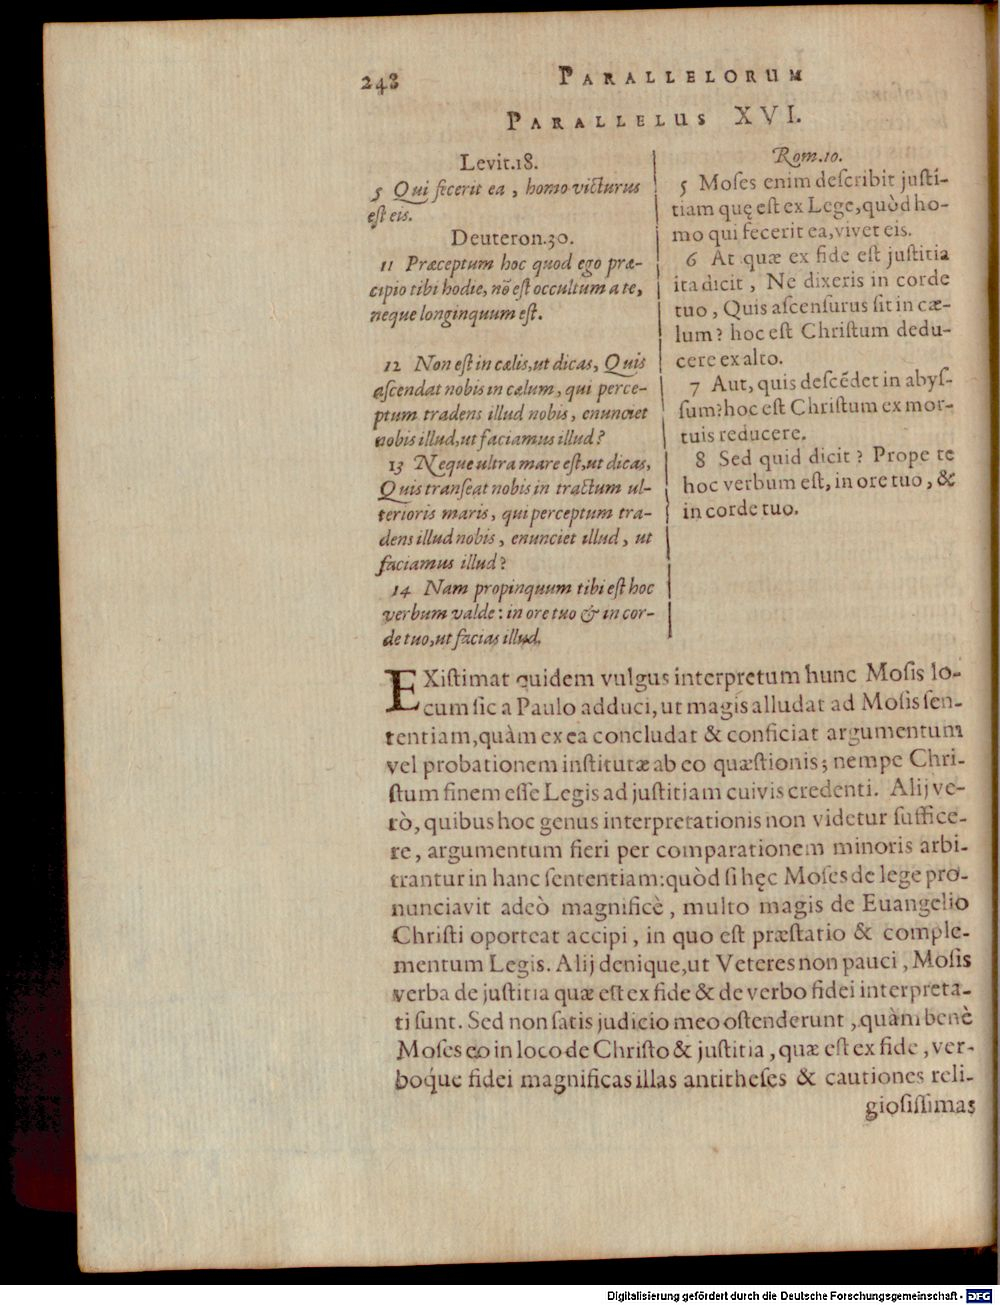 243 PARALLELORUM
PARALLELUS XVI.
Levit.18.
5 Qui fecerit ea, homo victurus
est eis.
Deuteron.30.
11 Præceptum hoc quod ego præ-
cipio tibi hodie, nō est occultum a te,
neque longinquum est.
12 Non est in cælis, ut dicas, Quis
ascendat nobis in cælum, qui perce-
ptum tradens illud nobis, enunciet
nobis illud, ut faciamus illud?
13 Neque ultra mare est, ut dicas,
Quis transeat nobis in tractum ul-
terioris maris, qui perceptum tra-
dens illud nobis, enunciet illud, ut
faciamus illud?
14 Nam propinquum tibi est hoc
verbum valde: in ore tuo & in cor-
de tuo, ut facias illud.
Rom.10.
5 Moses enim describit justi-
tiam quę est ex Lege, quòd ho-
mo qui fecerit ea, vivet eis.
6 At quæ ex fide est justitia
ita dicit, Ne dixeris in corde
tuo, Quis ascensurus sit in cæ-
lum? hoc est Christum dedu-
cere ex alto.
7 Aut, quis descēdet in abys-
sum? hoc est Christum ex mor-
tuis reducere.
8 Sed quid dicit? Prope te
hoc verbum est, in ore tuo, &
in corde tuo.
EXistimat quidem vulgus interpretum hunc Mosis lo-
cum sic a Paulo adduci, ut magis alludat ad Mosis sen-
tentiam, quàm ex ea concludat & conficiat argumentum
vel probationem institutæ ab eo quæstionis; nempe Chri-
stum finem esse Legis ad justitiam cuivis credenti. Alij ve-
rò, quibus hoc genus interpretationis non videtur suffice-
re, argumentum fieri per comparationem minoris arbi-
trantur in hanc sententiam: quòd si hęc Moses de lege pro-
nunciavit adeò magnificè, multo magis de Euangelio
Christi oporteat accipi, in quo est præstatio & comple-
mentum Legis. Alij denique, ut Veteres non pauci, Mosis
verba de justitia quæ est ex fide & de verbo fidei interpreta-
ti sunt. Sed non satis judicio meo ostenderunt, quàm benè
Moses eo in loco de Christo & justitia, quæ est ex fide, ver-
boq́ue fidei magnificas illas antitheses & cautiones reli-
giosissimas
Digitalisierung gefördert durch die Deutsche Forschungsgemeinschaft - DFG